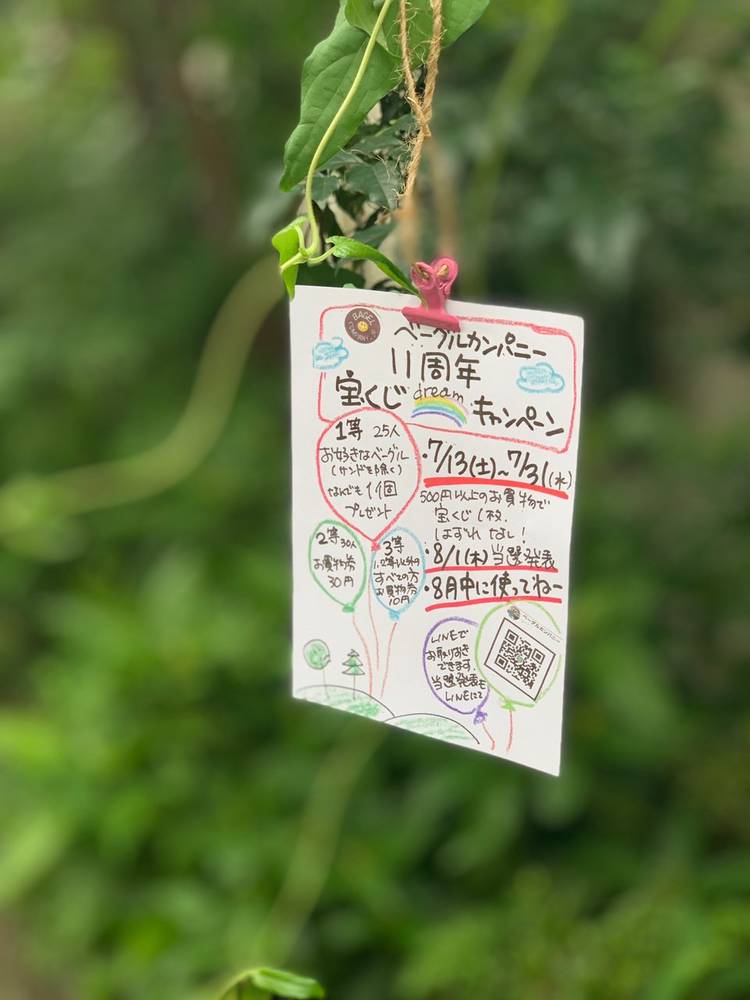 BAGEL
COMPANY
ベーグルカンパニー
11周年
宝くじ dream キャンペーン
1等 25人
お好きなベーグル
(サンドを除く)
なんでも1個
プレゼント
・7/13(土)~7/31(水)
500円以上のお買物で
宝くじ1枚.
はずれなし!
・8/1(木)当選発表
・8月中に使ってねー
2等30人
お買物券
30円
3等
1.2等以外の
すべての方
お買物券
10円
LINEで
お取りおき
できます.
当選発表も
LINEにて
ベーグルカンパニー